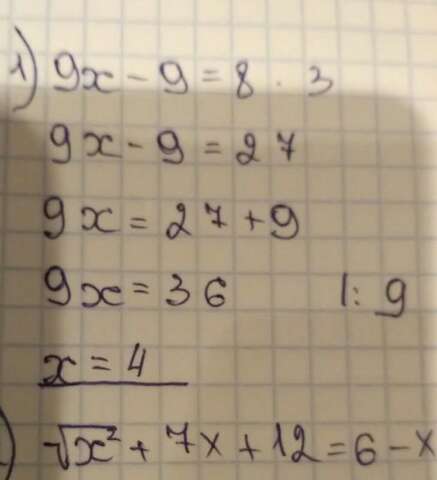 1) 9x - 9 = 8 · 3
9x - 9 = 27
9x = 27 + 9
9x = 36 |: 9
x = 4
) √x² + 7x + 12 = 6 - x